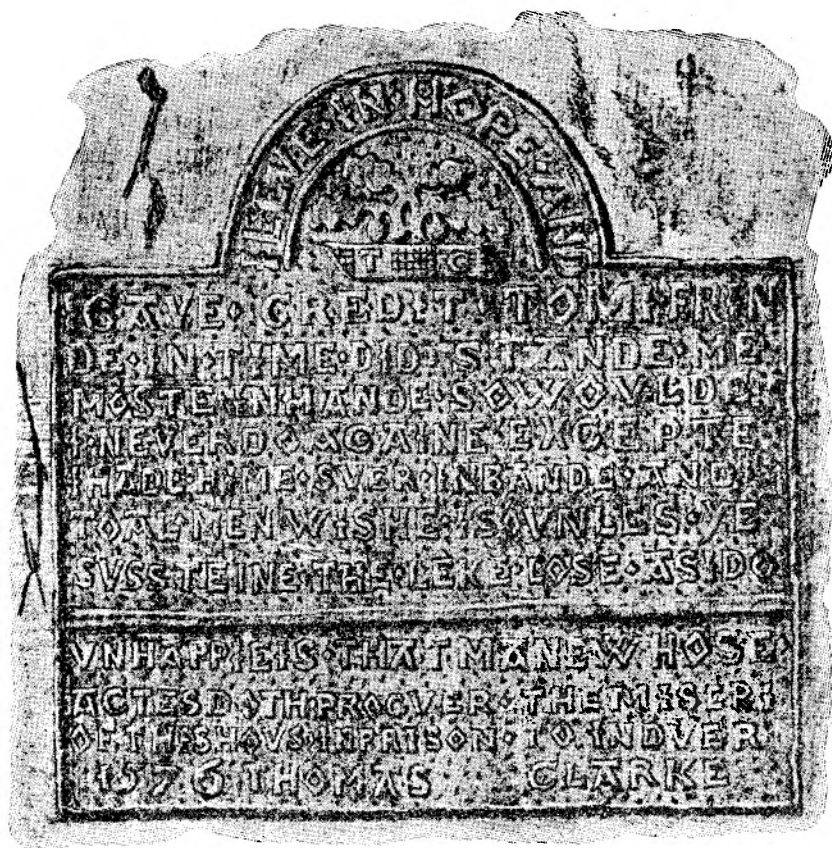 I LEVE · IN · HOPE · AND
T C
I GAVE · CREDIT · TO MI · FRIN
DE · IN · TIME · DID · STANDE · ME
MOSTE IN HANDE · SO WOVLDE ·
I · NEVER DO AGAINE · EXCEPTE ·
I HADE · HIME · SVER · IN BANDE · AND
TO AL MEN WISHE I SO VNLLS · YE
SVSSTEINE · THE · LEKE LOSE · AS I DO
VNHAPPIE IS · THAT MANE WHOSE ·
ACTES DOTH PROCVER · THE MISERI
OF THIS HOVS · IN PRISON · TO INDVER ·
1576 THOMAS CLARKE